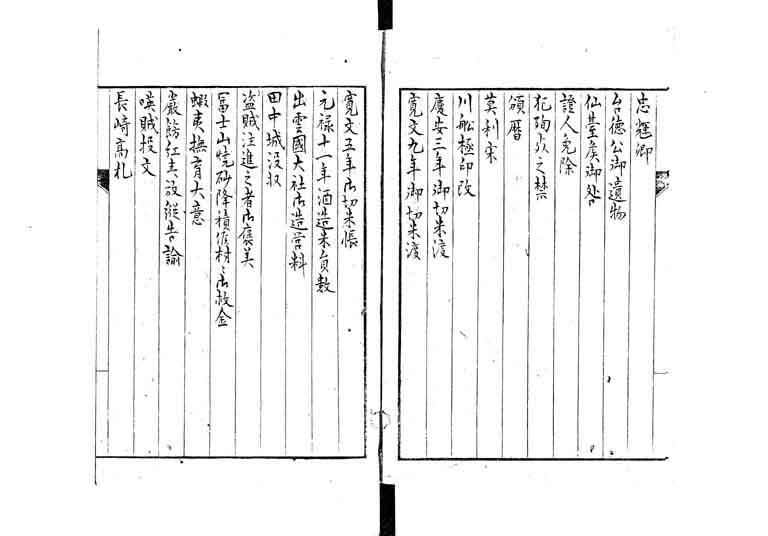 忠輝卿
台徳公御遺物
仙臺矦御咎
證人免除
犯殉死之禁
頒暦
莫利宋
川舩極印改
慶安三年御切朱渡
寛文九年御切朱渡
寛文五年御切朱帳
元禄十一年酒造朱員数
出雲國大社御造営料
田中城没収
盗賊注進之者御褒美
冨士山焼砂降積候村々御救金
蝦夷撫育大意
嚴
放従告諭
暎賊投文
長崎高札